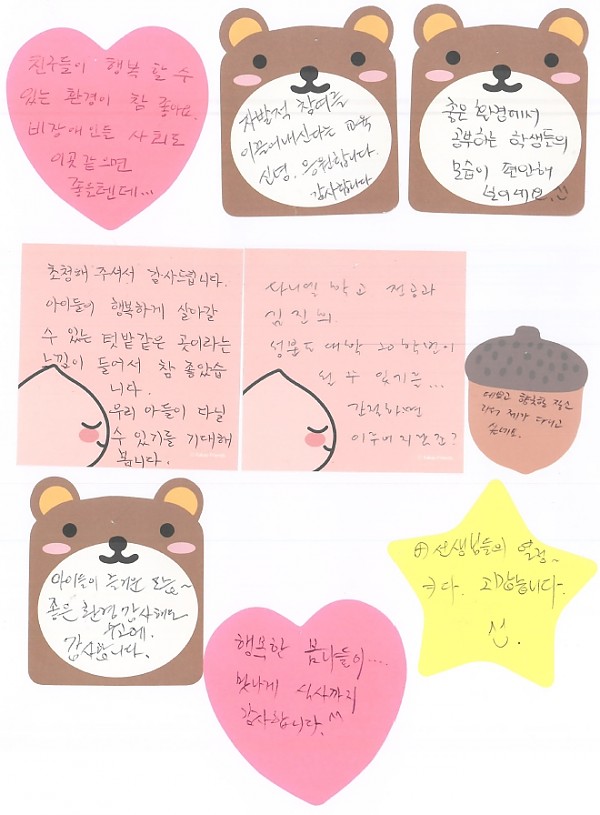 친구들이 행복 할 수
있는 환경이 참 좋아요.
비장애인들 사회도
이곳 같으면
좋을텐데...
자발적 참여를
이끌어내신다는 교육
신념. 응원합니다.
감사합니다
좋은 환경에서
공부하는 학생들의
모습이 편안해
보이네요.
초청해 주셔서 감사드립니다.
아이들이 행복하게 살아갈
수 있는 텃밭같은 곳이라는
느낌이 들어서 참 좋았습
니다.
우리 아들이 다닐
수 있기를 기대해
봅니다.
다니엘 학교 전공과
김진희.
성분도 대학 20학번이
될 수 있기를...
간절하면
이루어지겠죠?
제가 다니고
싶네요.
아이들이 즐거운
좋은 환경 감사해요
감사합니다.
행복한 봄나들이....
맛나게 식사까지
감사합니다. ^^
선생님들의 열정~
크다. 고맙습니다.